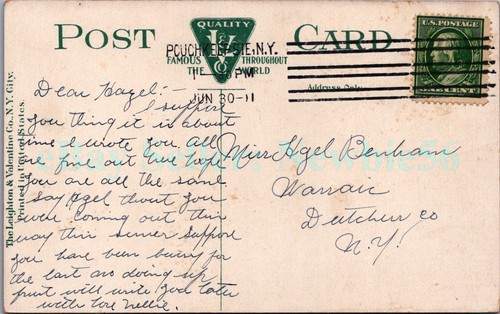 POST CARD
QUALITY
L V Co
FAMOUS THROUGHOUT
THE WORLD
POUGHKEEPSIE, N.Y.
PM
JUN 30 11
U.S. POSTAGE
CENT
Address Only
The Leighton & Valentine Co., N.Y. City.
Printed in United States.
Dear Hazel:-
I suppose
you thing it is about
time I wrote you all
are fine out here hope
you are all the same
say Hazel thout you
were coming out this
way this summer suppose
you have been busy for
the last doing up
fruit will write you later
with love Nellie.
Miss Hazel Benham
Warraic
Dutchess co
N.Y.